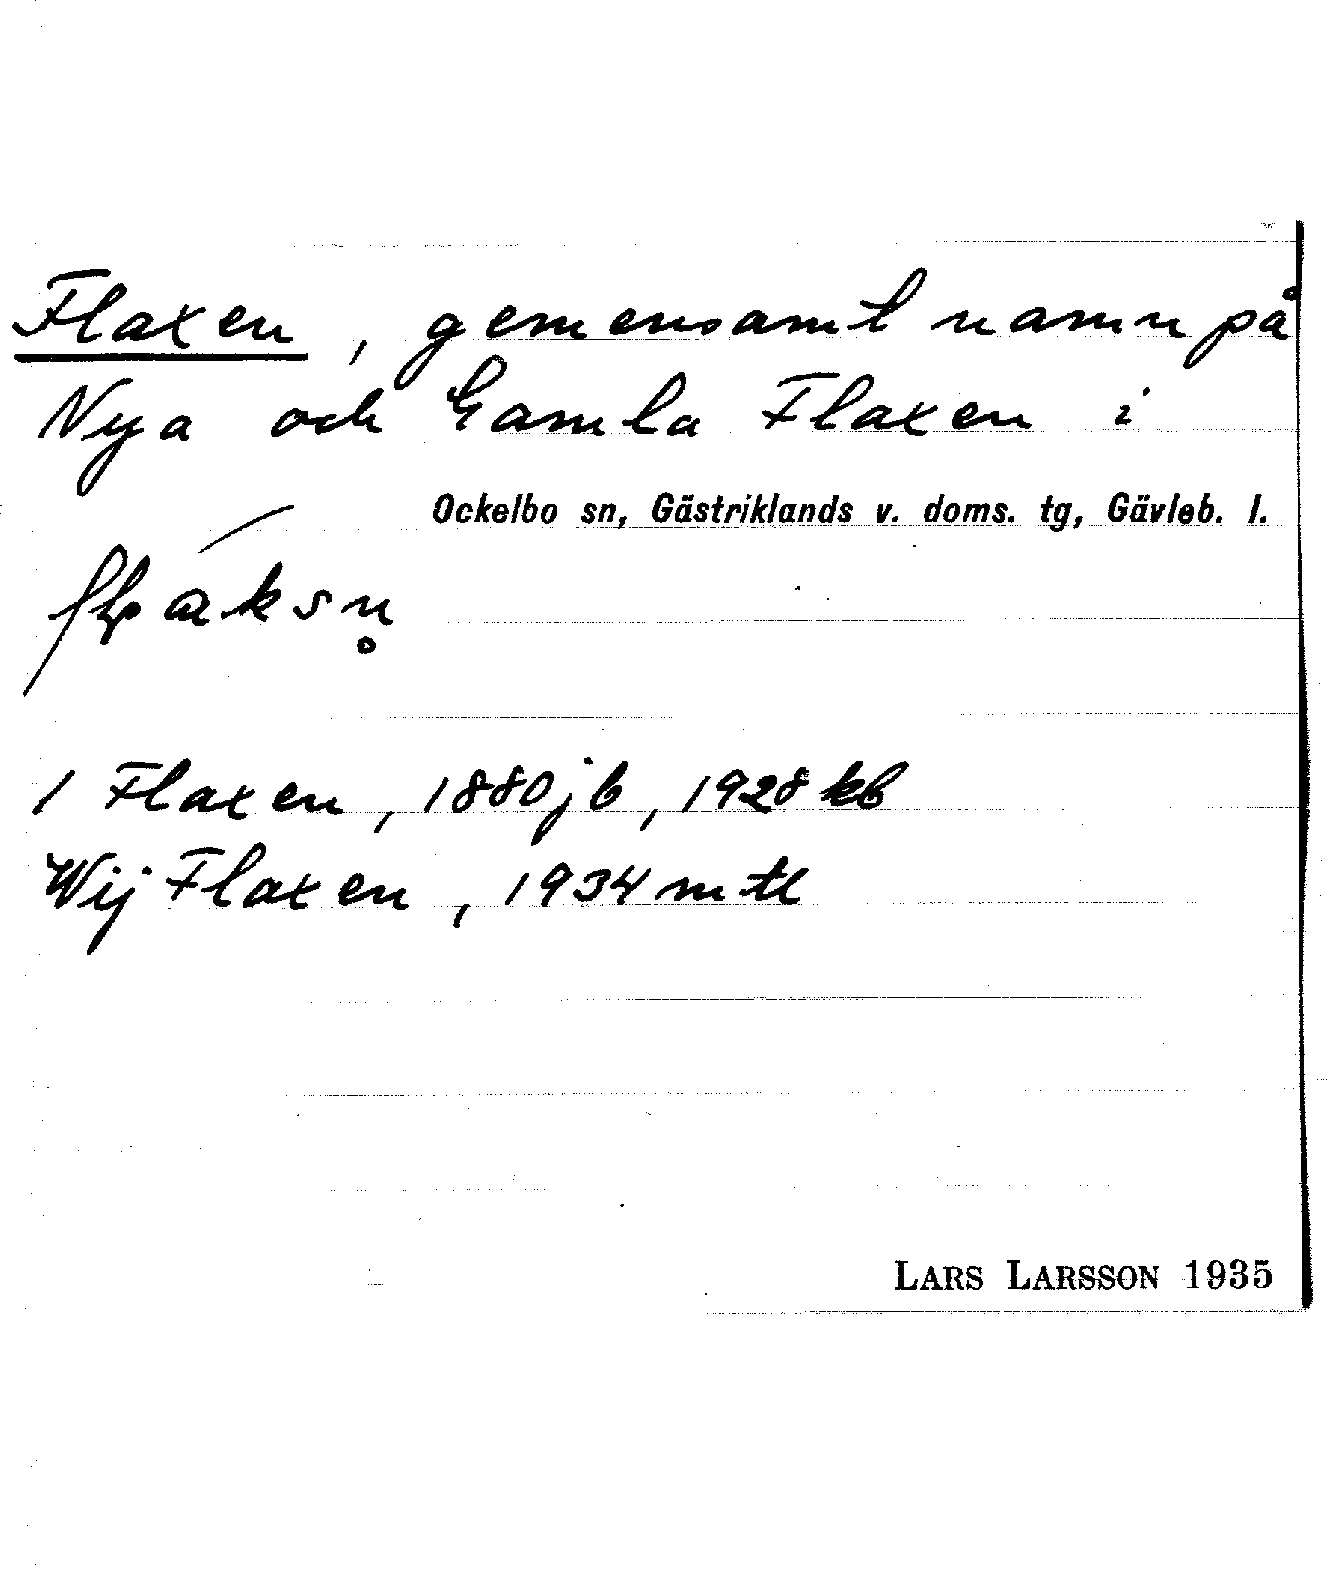 Flaxen, gemensamt namn på
Nya och Gamla Flaxen i
Ockelbo sn, Gästriklands v. doms. tg, Gävleb. l.
1 Flaxen, 1880 jb, 1928 kb
Wij Flaxen, 1934 mtl
LARS LARSSON 1935